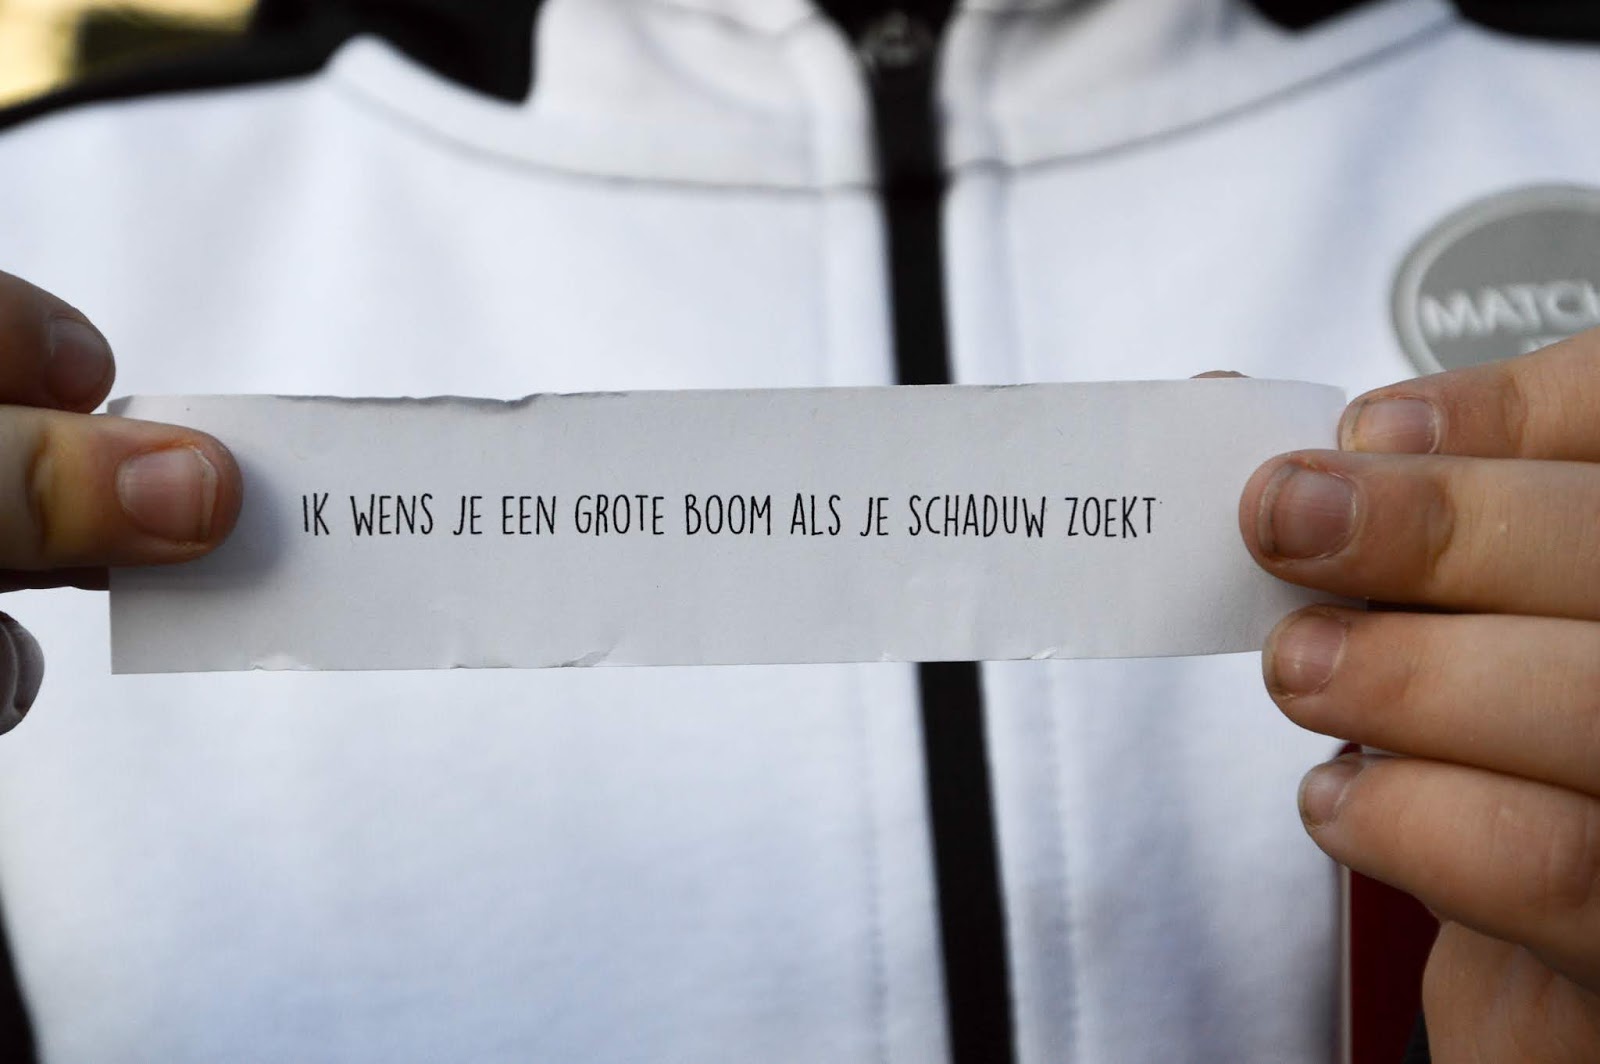 IK WENS JE EEN GROTE BOOM ALS JE SCHADUW ZOEKT